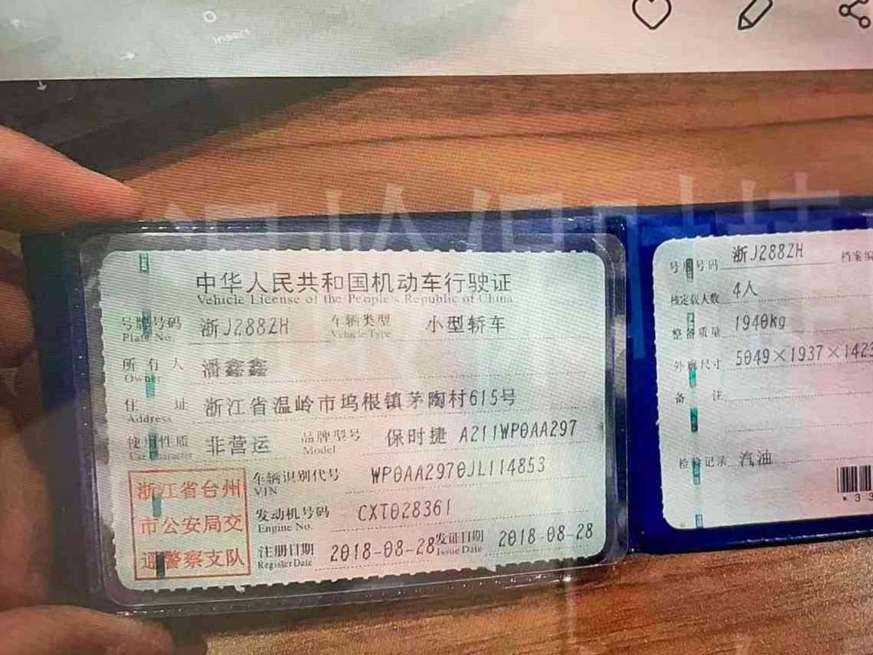 Insert
中华人民共和国机动车行驶证
Vehicle License of the People's Republic of China
号牌号码 浙J288ZH 车辆类型 小型轿车
Plate No. Vehicle Type
所有人 潘鑫鑫
Owner
住址 浙江省温岭市坞根镇茅陶村615号
Address
使用性质 非营运 品牌型号 保时捷 A211WP0AA297
Use Character Model
浙江省台州
市公安局交
通警察支队
车辆识别代号 WP0AA2970JL114853
VIN
发动机号码 CXT028361
Engine No.
注册日期 2018-08-28 发证日期 2018-08-28
Register Date Issue Date
号牌号码 浙J288ZH 档案编
核定载人数 4人
整备质量 1940kg
外廓尺寸 5049×1937×1423
备注
检验记录 汽油